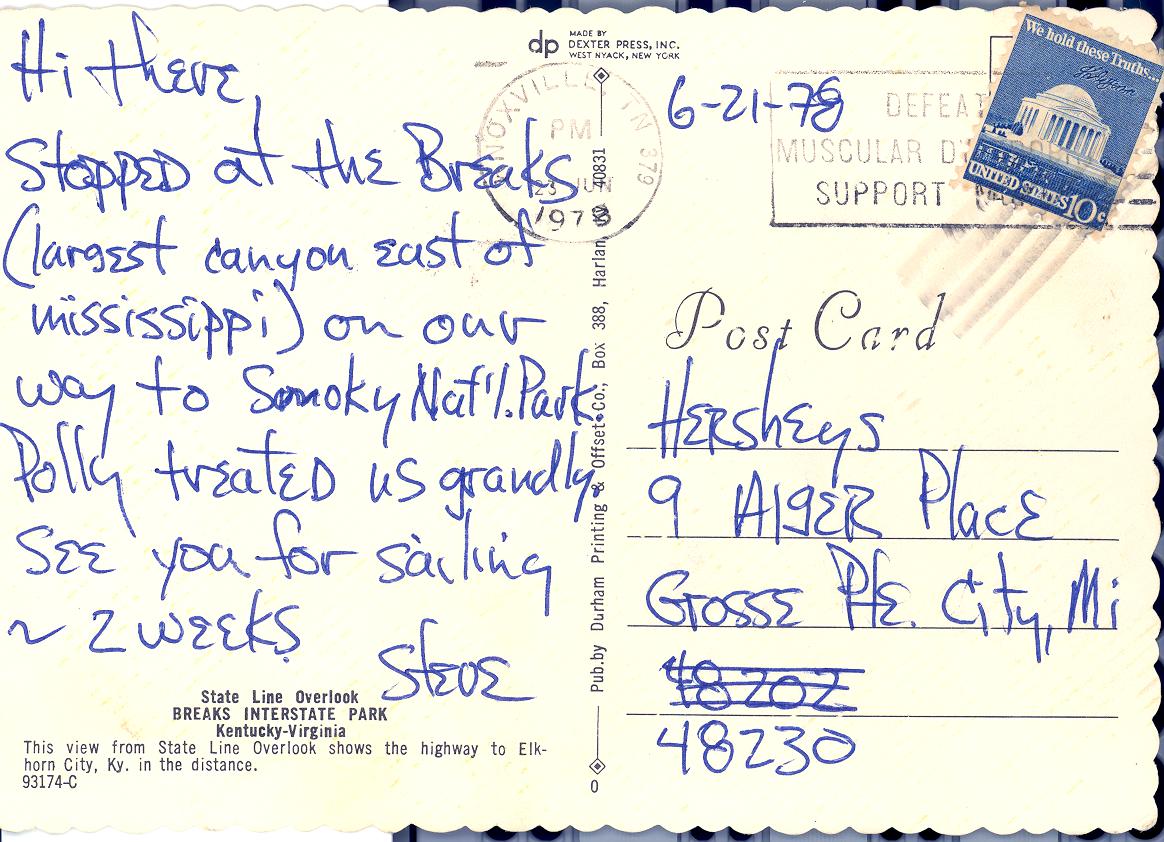 Hi there,
Stopped at the Breaks
(largest canyon east of
mississippi) on our
way to Smoky Nat'l. Park.
Polly treated us grandly.
See you for sailing
~ 2 weeks
Steve
State Line Overlook
BREAKS INTERSTATE PARK
Kentucky-Virginia
This view from State Line Overlook shows the highway to Elk-
horn City, Ky. in the distance.
93174-C
dp
MADE BY
DEXTER PRESS, INC.
WEST NYACK, NEW YORK
Pub. by Durham Printing & Offset Co., Box 388, Harlan, Ky. 40831
0
KNOXVILLE, TN 379
PM
23 JUN
1978
6-21-78
DEFEAT
MUSCULAR
SUPPORT
We hold these Truths...
UNITED STATES 10c
Post Card
Hersheys
9 Alger Place
Grosse Pte. City, Mi
48202
48230